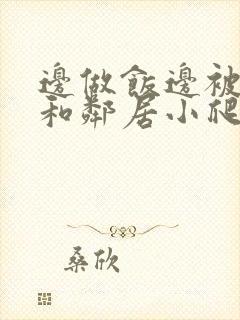 邊做飯邊被
和鄰居小爬
桑欣